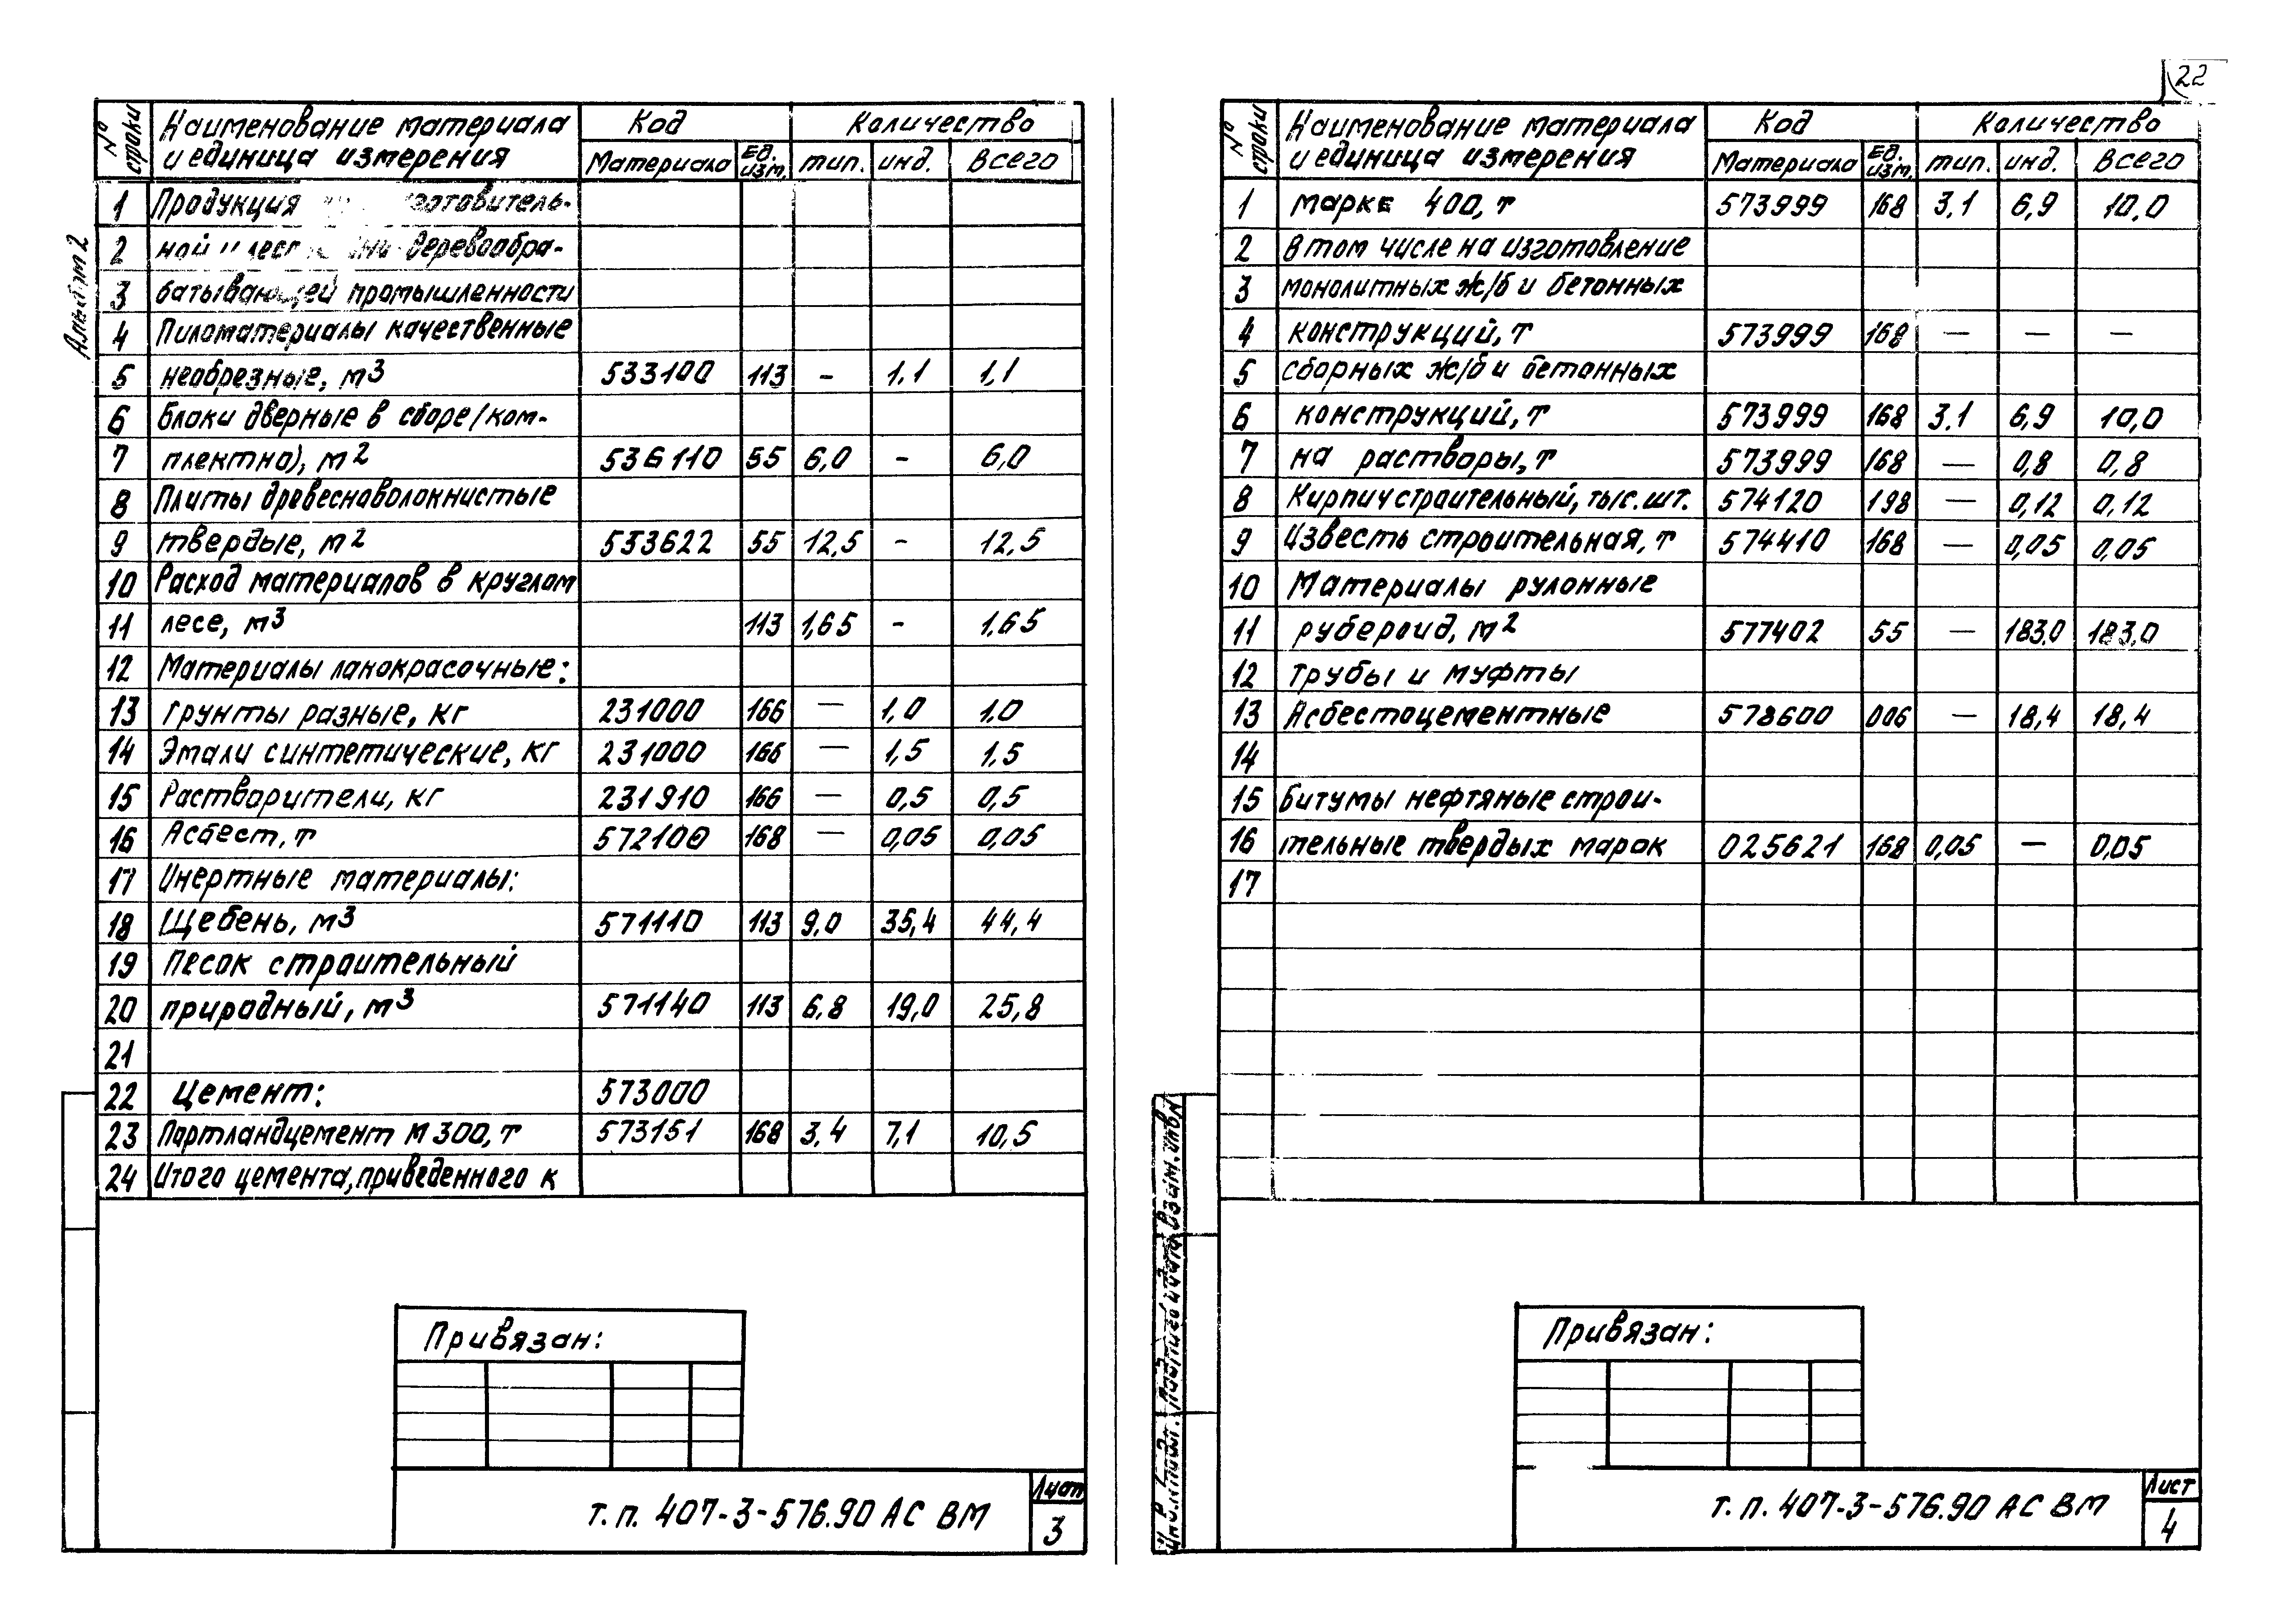 22
Альбом 2
№ строки | Наименование материала и единица измерения | Код | Количество
Материала | Ед. изм. | тип. | инд. | Всего
1 Продукция
2 ной деревообра-
3 батывающей промышленности
4 Пиломатериалы качественные
5 необрезные, м3 533100 113 – 1.1 1,1
6 Блоки дверные в сборе/ком-
7 плектно), м2 536110 55 6,0 – 6,0
8 Плиты древесноволокнистые
9 твердые, м2 533622 55 12,5 – 12,5
10 Расход материалов в круглом
11 лесе, м3 113 1,65 – 1,65
12 Материалы лакокрасочные:
13 грунты разные, кг 231000 166 — 1,0 1.0
14 Эмали синтетические, кг 231000 166 — 1,5 1,5
15 Растворители, кг 231910 166 — 0,5 0,5
16 Асбест, т 572100 168 — 0,05 0,05
17 Инертные материалы:
18 Щебень, м3 571110 113 9.0 35,4 44,4
19 Песок строительный
20 природный, м3 571140 113 6,8 19,0 25,8
21
22 Цемент: 573000
23 Портландцемент М 300, т 573151 168 3.4 7,1 10,5
24 Итого цемента, приведенного к
Привязан:
т.п. 407-3-576.90 АС ВМ
Лист
3
№ строки | Наименование материала и единица измерения | Код | Количество
Материала | Ед. изм. | тип. | инд. | Всего
1 марке 400, т 573999 168 3.1 6,9 10,0
2 В том числе на изготовление
3 монолитных ж/б и бетонных
4 конструкций, т 573999 168 — — —
5 сборных ж/б и бетонных
6 конструкций, т 573999 168 3.1 6,9 10,0
7 на растворы, т 573999 168 — 0,8 0,8
8 Кирпич строительный, тыс. шт. 574120 198 — 0,12 0,12
9 Известь строительная, т 574410 168 — 0,05 0,05
10 Материалы рулонные
11 рубероид, м2 577402 55 — 183,0 183,0
12 трубы и муфты
13 Асбестоцементные 578600 006 — 18,4 18,4
14
15 Битумы нефтяные строи-
16 тельные твердых марок 025621 168 0,05 — 0,05
17
Взам. инв. №
Подпись и дата
Инв. № подл.
Привязан:
т.п. 407-3-576.90 АС ВМ
Лист
4